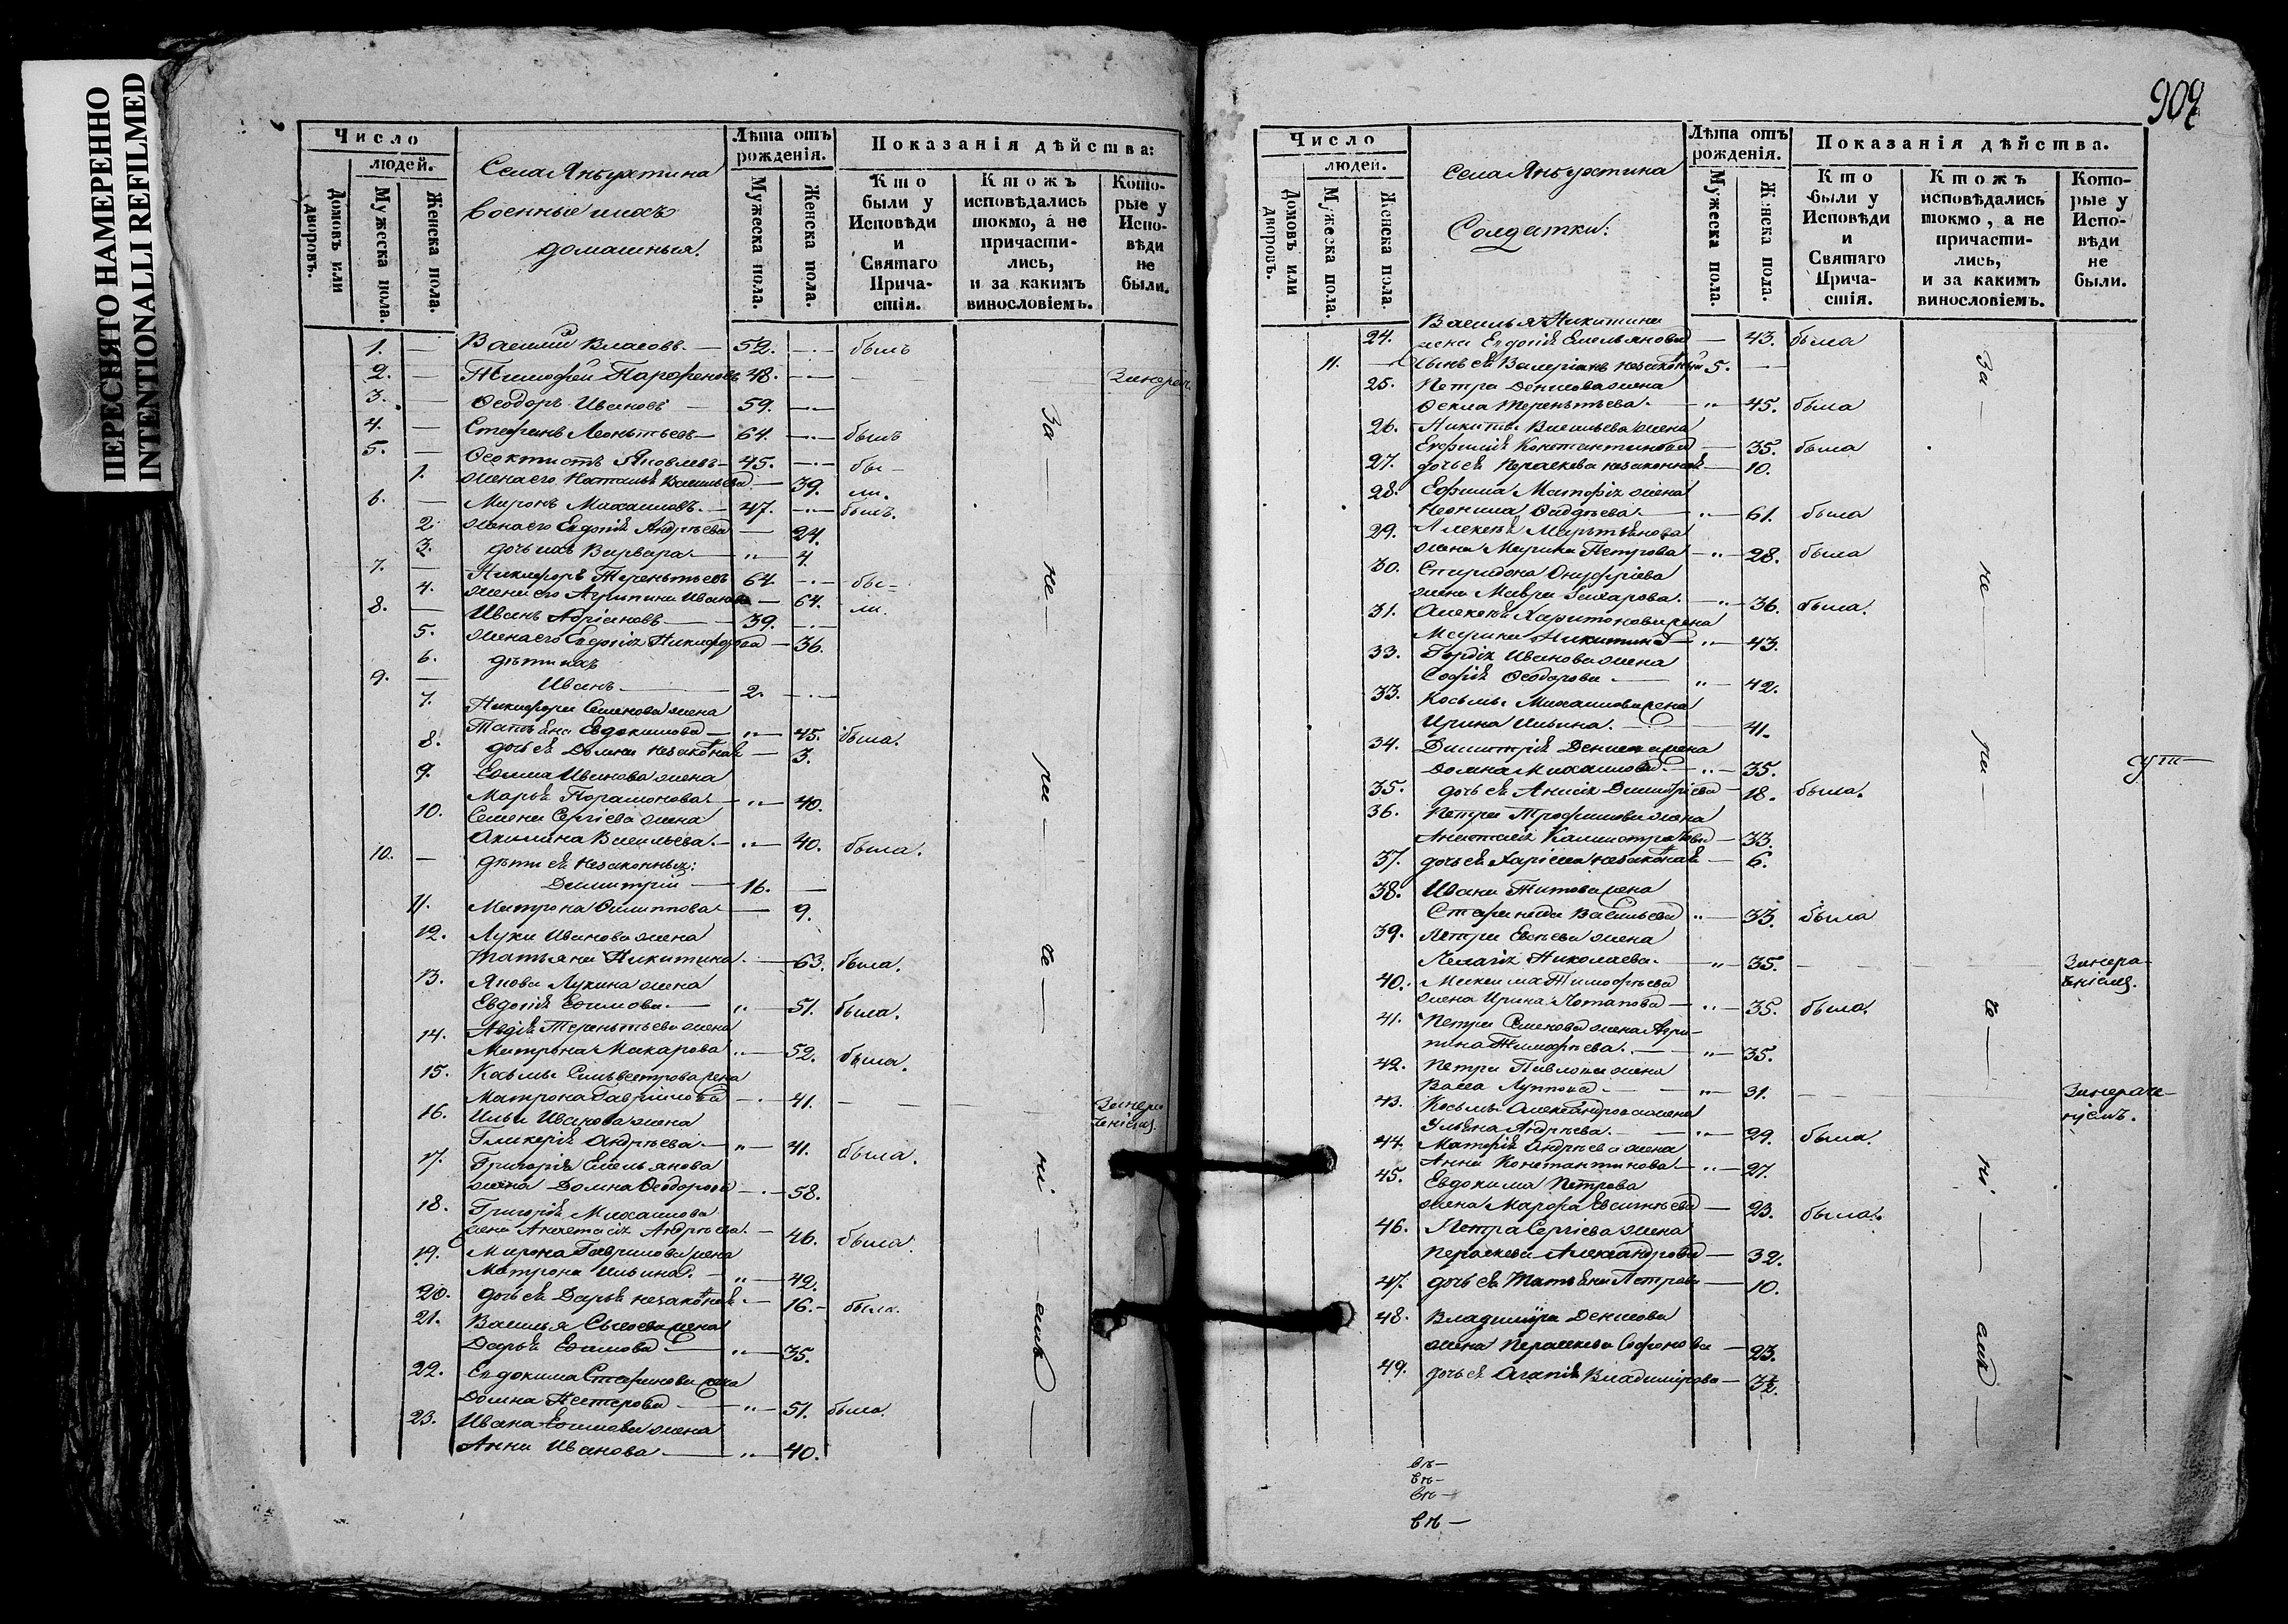 ПЕРЕСНЯТО НАМЕРЕННО
INTENTIONALLI REFILMED
Число
людей.
Домовъ или дворовъ.
Мужеска пола.
Женска пола.
Села Янгуржина
Военные ихъ
домашныя.
Лѣта отъ рожденія.
Мужеска пола.
Женска пола.
Показанія дѣйства:
Кто были у Исповѣди и Святаго Причастія.
Ктожъ исповѣдались токмо, а не причастились, и за какимъ винословіемъ.
Которые у Исповѣди не были.
1. — Василий Власовъ — 52. — былъ
2. — Тимофей Парфеновъ 48. —
3. — Ѳеодоръ Ивановъ — 59. —
4. — Стефанъ Леонтьевъ — 64. — былъ
5. — Ѳеоктистъ Яковлевъ — 45. — бы-
1. жена его Наталья Васильева — 39. ли.
6. — Миронъ Михаиловъ — 47. — былъ.
2. жена его Евдокія Андреева — 24.
3. дочь ихъ Варвара — " — 4.
7. — Никифоръ Терентьевъ 64. — бы-
4. жена его Агрипина Иванова — 64. ли.
8. — Иванъ — 39. —
5. жена его Евдокія Никифорова — 36.
6. дѣти ихъ
9. — Иванъ — 2. —
7. Никифора Семенова жена
Татьяна Евдокимова — " — 45. была.
8. дочь ея Домна незаконная — 3.
9. Ефима Иванова жена
Марья Парамонова — " — 40.
10. Семена Сергіева жена
Акилина Васильева — " — 40. была.
10. — дѣти ея незаконныя:
Димитрий — 16. —
11. Матрона Филиппова — 9.
12. Луки Иванова жена
Татьяна Никитина — 63. была.
13. Якова Лукина жена
Евдокія Ефимова — " — 51. была.
14. Авдѣя Терентьева жена
Матрона Макарова " — 52. была.
15. Козьмы Сильвестрова жена
Матрона Гаврилова — 41. —
16. Ильи Иванова жена
Гликерія Андреева — " — 41. была.
17. Григорія Емельянова
жена Домна Ѳеодорова — 58.
18. Григорія Михаилова
жена Анастасія Андреева — 46. была.
19. Мирона Гаврилова жена
Матрона Ильина — " — 42.
20. дочь ея Дарья незаконная — 16. — была.
21. Василья Сысоева жена
Дарья Ефимова — " — 35.
22. Евдокима Стефанова жена
Домна Нестерова — " — 51. была.
23. Ивана Ефимова жена
Анна Иванова — " — 40.
За — не — ра — че — ні — емъ —
Число
людей.
Домовъ или дворовъ.
Мужеска пола.
Женска пола.
Села Янгуржина
Солдатки:
Лѣта отъ рожденія.
Мужеска пола.
Женска пола.
Показанія дѣйства.
Кто были у Исповѣди и Святаго Причастія.
Ктожъ исповѣдались токмо, а не причастились, и за какимъ винословіемъ.
Которые у Исповѣди не были.
24. Василья Никитина
жена Евдокія Емельянова — 43. была
11. — Сынъ ея Валеріанъ незаконный 5. —
25. Петра Денисова жена
Ѳекла Терентьева — " — 45. была
26. Никиты Васильева жена
Евфимія Константинова — 35. была
27. дочь ея Параскева незаконная — 10.
28. Ефима жена
Неонила — " — 61. была
29. Алексѣя Мартынова
жена Марина Петрова — " — 28. была
30. Спиридона Онуфріева
жена Мавра Захарова — " — 36. была.
31. Алексѣя Харитонова жена
Марина Никитина — " — 43.
33. Гордія Иванова жена
Софія Ѳеодорова — " — 42.
33. Козьмы Михаилова жена
Ирина Ильина — 41.
34. Димитрія жена
Домна Михаилова — " — 35.
35. дочь ея Анисія Димитріева — 18. была.
36. Петра Трофимова жена
Анастасія Калистратова — 33.
37. дочь ея незаконная — 6.
38. Ивана Титова жена
Стефанида Васильева " — 33. была
39. Петра Евсеева жена
Пелагія Николаева — " — 35. —
40. Максима Тимофѣева
жена Ирина Потапова — " — 35. была.
41. Петра Семенова жена Агри-
пина Тимофѣева — " — 35.
42. Петра Павлова жена
Васса — " — 31. —
43. Козьмы Александрова жена
Ульяна Андреева — " — 29. была.
44. Андреева жена
Анна Константинова — " — 27.
45. Евдокима Петрова
жена Марфа — 23. была.
46. Петра Сергіева жена
Параскева Александрова — 32.
47. дочь ея Татьяна Петрова — 10.
48. Владиміра Денисова
жена Параскева Софонова — 23.
49. дочь ея Агапія Владимірова — 3½.
За — не — ра — че — ні — емъ —